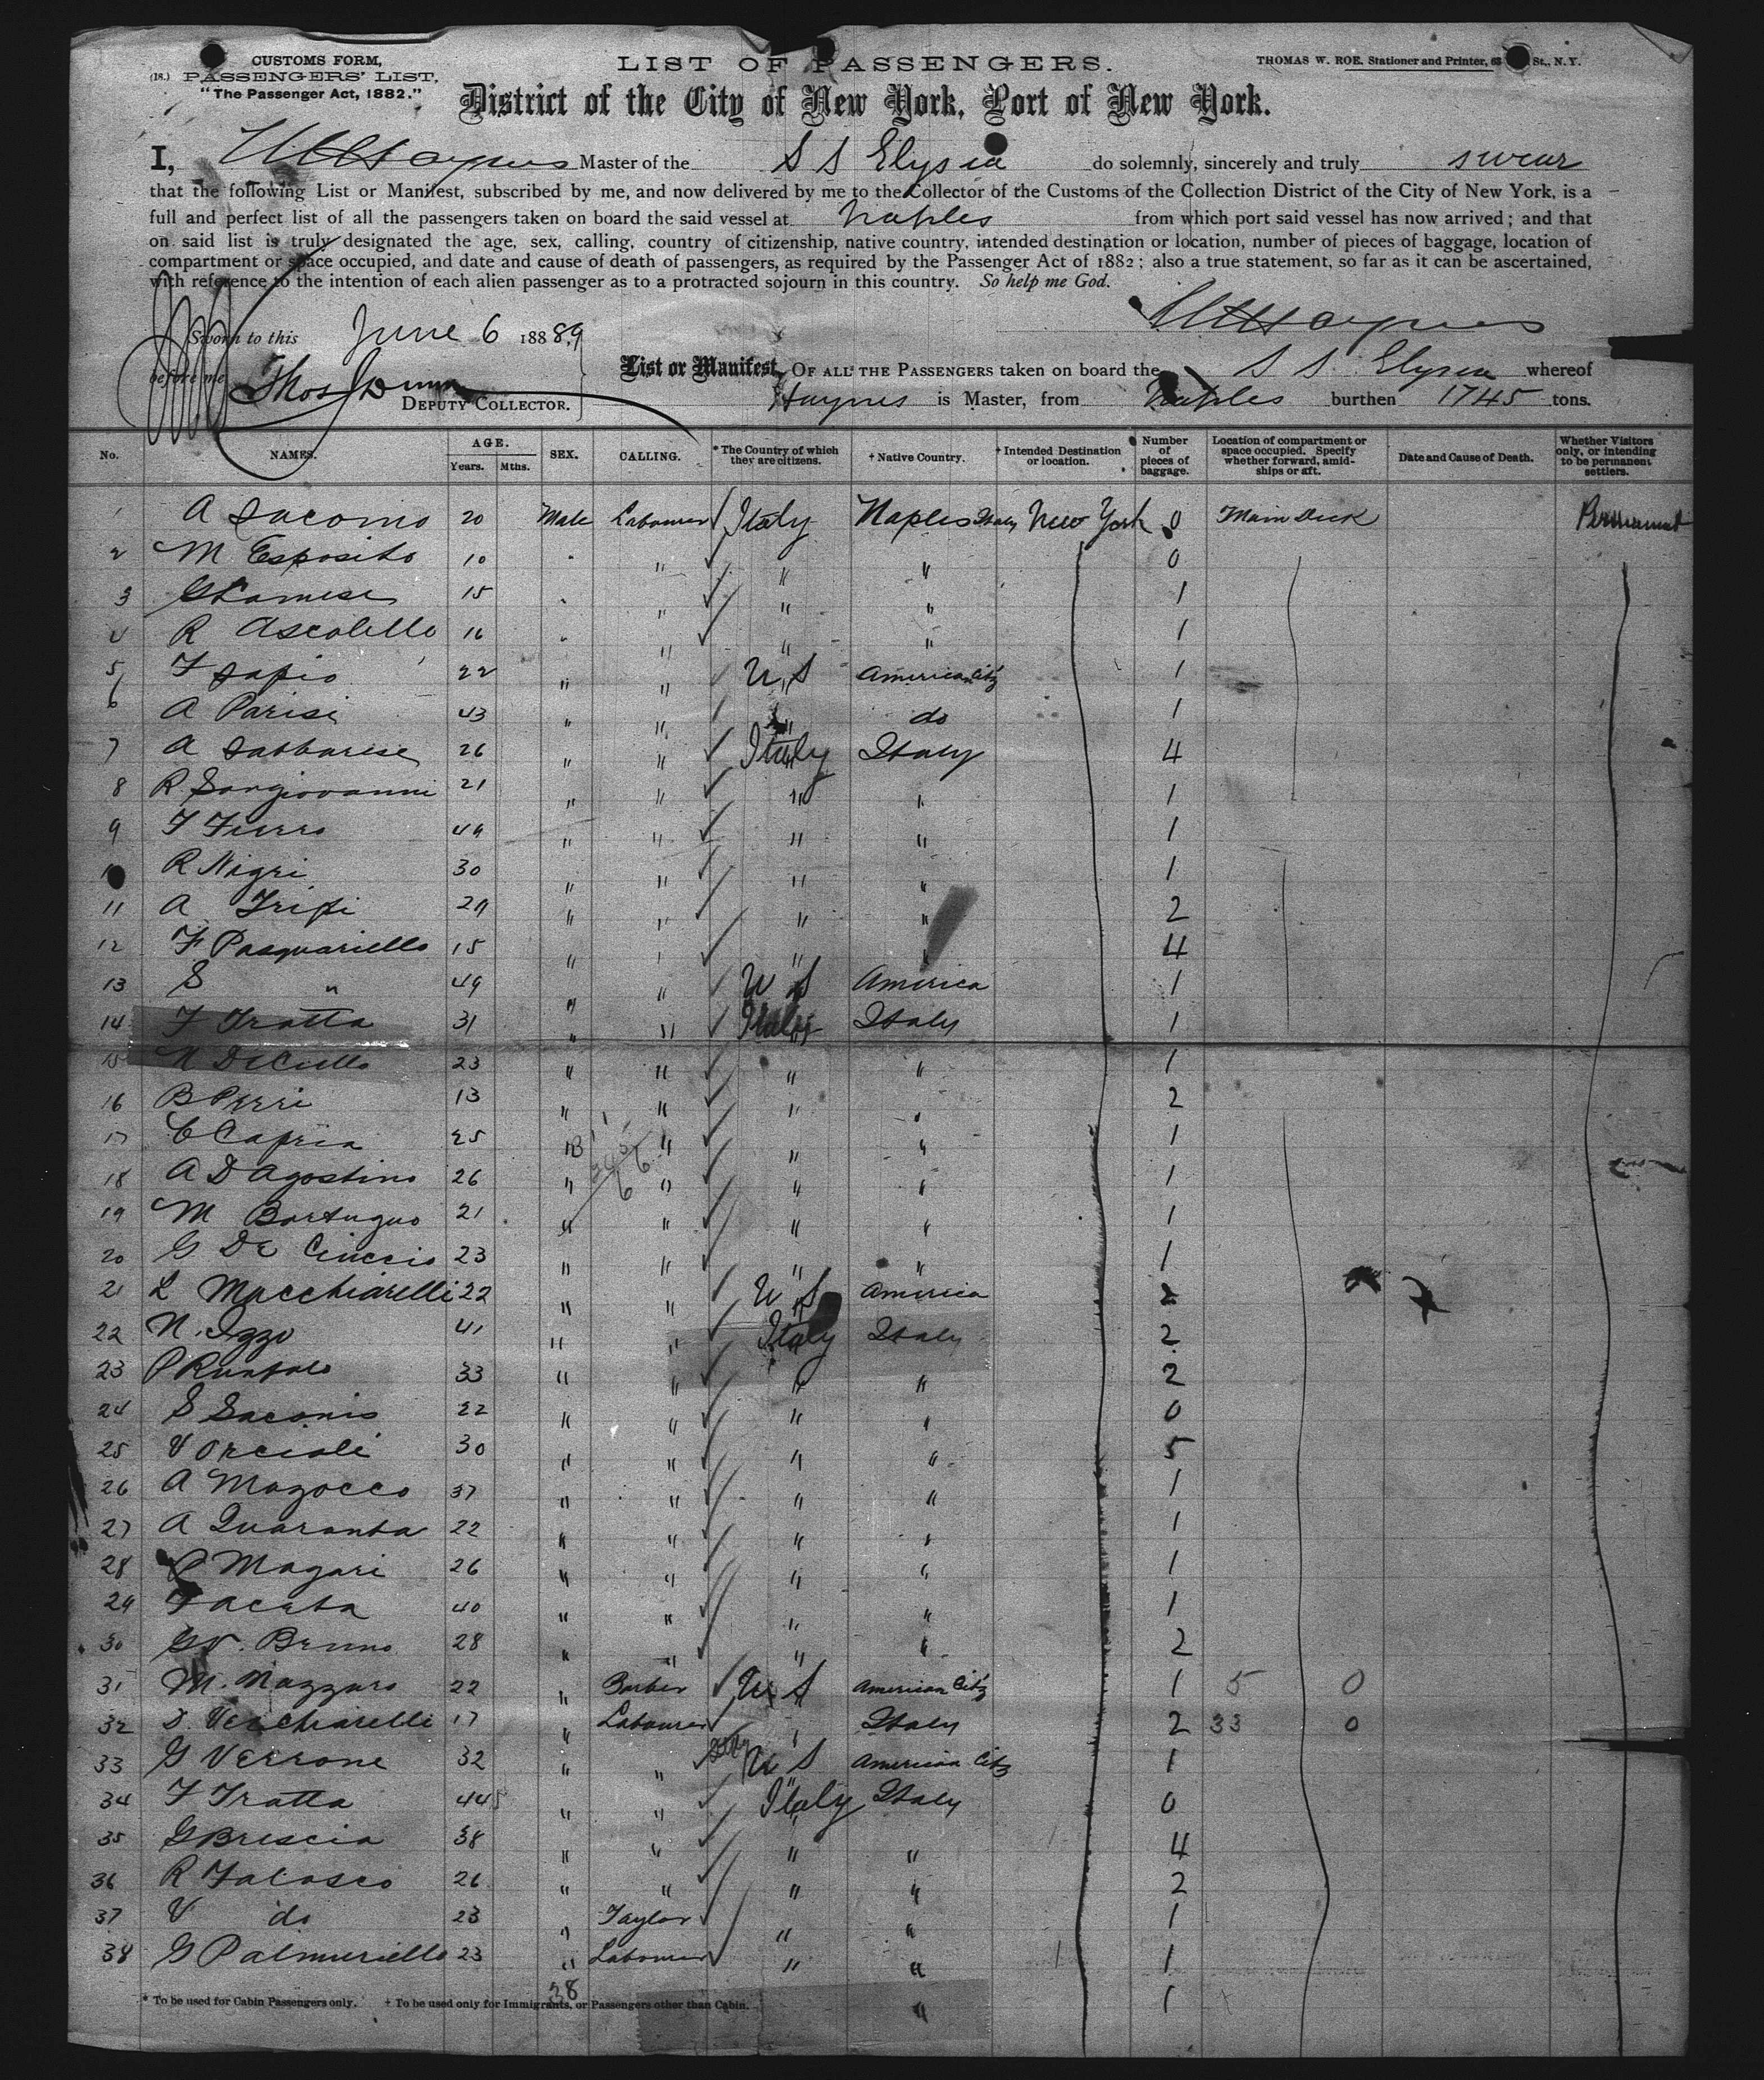 CUSTOMS FORM,
(18.) PASSENGERS' LIST,
"The Passenger Act, 1882."
LIST OF PASSENGERS.
THOMAS W. ROE, Stationer and Printer, 63 St., N. Y.
District of the City of New York, Port of New York.
I, Haynes Master of the S S Elysia do solemnly, sincerely and truly swear
that the following List or Manifest, subscribed by me, and now delivered by me to the Collector of the Customs of the Collection District of the City of New York, is a
full and perfect list of all the passengers taken on board the said vessel at Naples from which port said vessel has now arrived; and that
on said list is truly designated the age, sex, calling, country of citizenship, native country, intended destination or location, number of pieces of baggage, location of
compartment or space occupied, and date and cause of death of passengers, as required by the Passenger Act of 1882; also a true statement, so far as it can be ascertained,
with reference to the intention of each alien passenger as to a protracted sojourn in this country. So help me God.
Haynes
Sworn to this June 6 1889
before me Thos Dunn
DEPUTY COLLECTOR.
List or Manifest, OF ALL THE PASSENGERS taken on board the S S Elysia whereof
Haynes is Master, from Naples burthen 1745 tons.
No. NAMES. AGE. Years. Mths. SEX. CALLING. * The Country of which they are citizens. + Native Country. + Intended Destination or location. Number of pieces of baggage. Location of compartment or space occupied. Specify whether forward, amidships or aft. Date and Cause of Death. Whether Visitors only, or intending to be permanent settlers.
1 A Sacomo 20 Male Labourer Italy Naples Italy New York 0 Main Deck Permanent
2 M Esposito 10 " " " " 0
3 15 " " " " 1
4 R Ascolillo 16 " " " " 1
5 F Sapio 22 " " U S American Citz 1
6 A Parisi 43 " " " do 1
7 A Sabbarese 26 " " Italy Italy 4
8 R Sangiovanni 21 " " " " 1
9 F Furro 49 " " " " 1
10 R Nigri 30 " " " " 1
11 A Tripi 29 " " " " 2
12 F Pasquariello 15 " " " " 4
13 S " 49 " " U S America 1
14 F Tratta 31 " " Italy Italy 1
15 N DeCiello 23 " " " " 1
16 B Perri 13 " " " " 2
17 C Capria 25 " " " " 1
18 A D Agostino 26 " " " " 1
19 M Bortuguo 21 " " " " 1
20 G De Cinccio 23 " " " " 1
21 L Macchiarelli 22 " " U S America 2
22 N. Izzo 41 " " Italy Italy 2
23 P Runfolo 33 " " " " 2
24 S Saconis 22 " " " " 0
25 V Orcioli 30 " " " " 5
26 A Magocco 37 " " " " 1
27 A Quaranta 22 " " " " 1
28 P Magari 26 " " " " 1
29 F Aceta 40 " " " " 1
30 G V. Bruno 28 " " " " 2
31 M. Mazzaro 22 " Barber U S American Citz 1 5 0
32 D. Vecchiarelli 17 " Labourer " Italy 2 33 0
33 G Verrone 32 " " U S American Citz 1
34 F Tratta 44 " " Italy Italy 0
35 G Brescia 38 " " " " 4
36 R Falasco 26 " " " " 2
37 V do 23 " Taylor " " 1
38 G Palmuriello 23 " Labourer " " 1
38 " 1
* To be used for Cabin Passengers only. + To be used only for Immigrants, or Passengers other than Cabin.